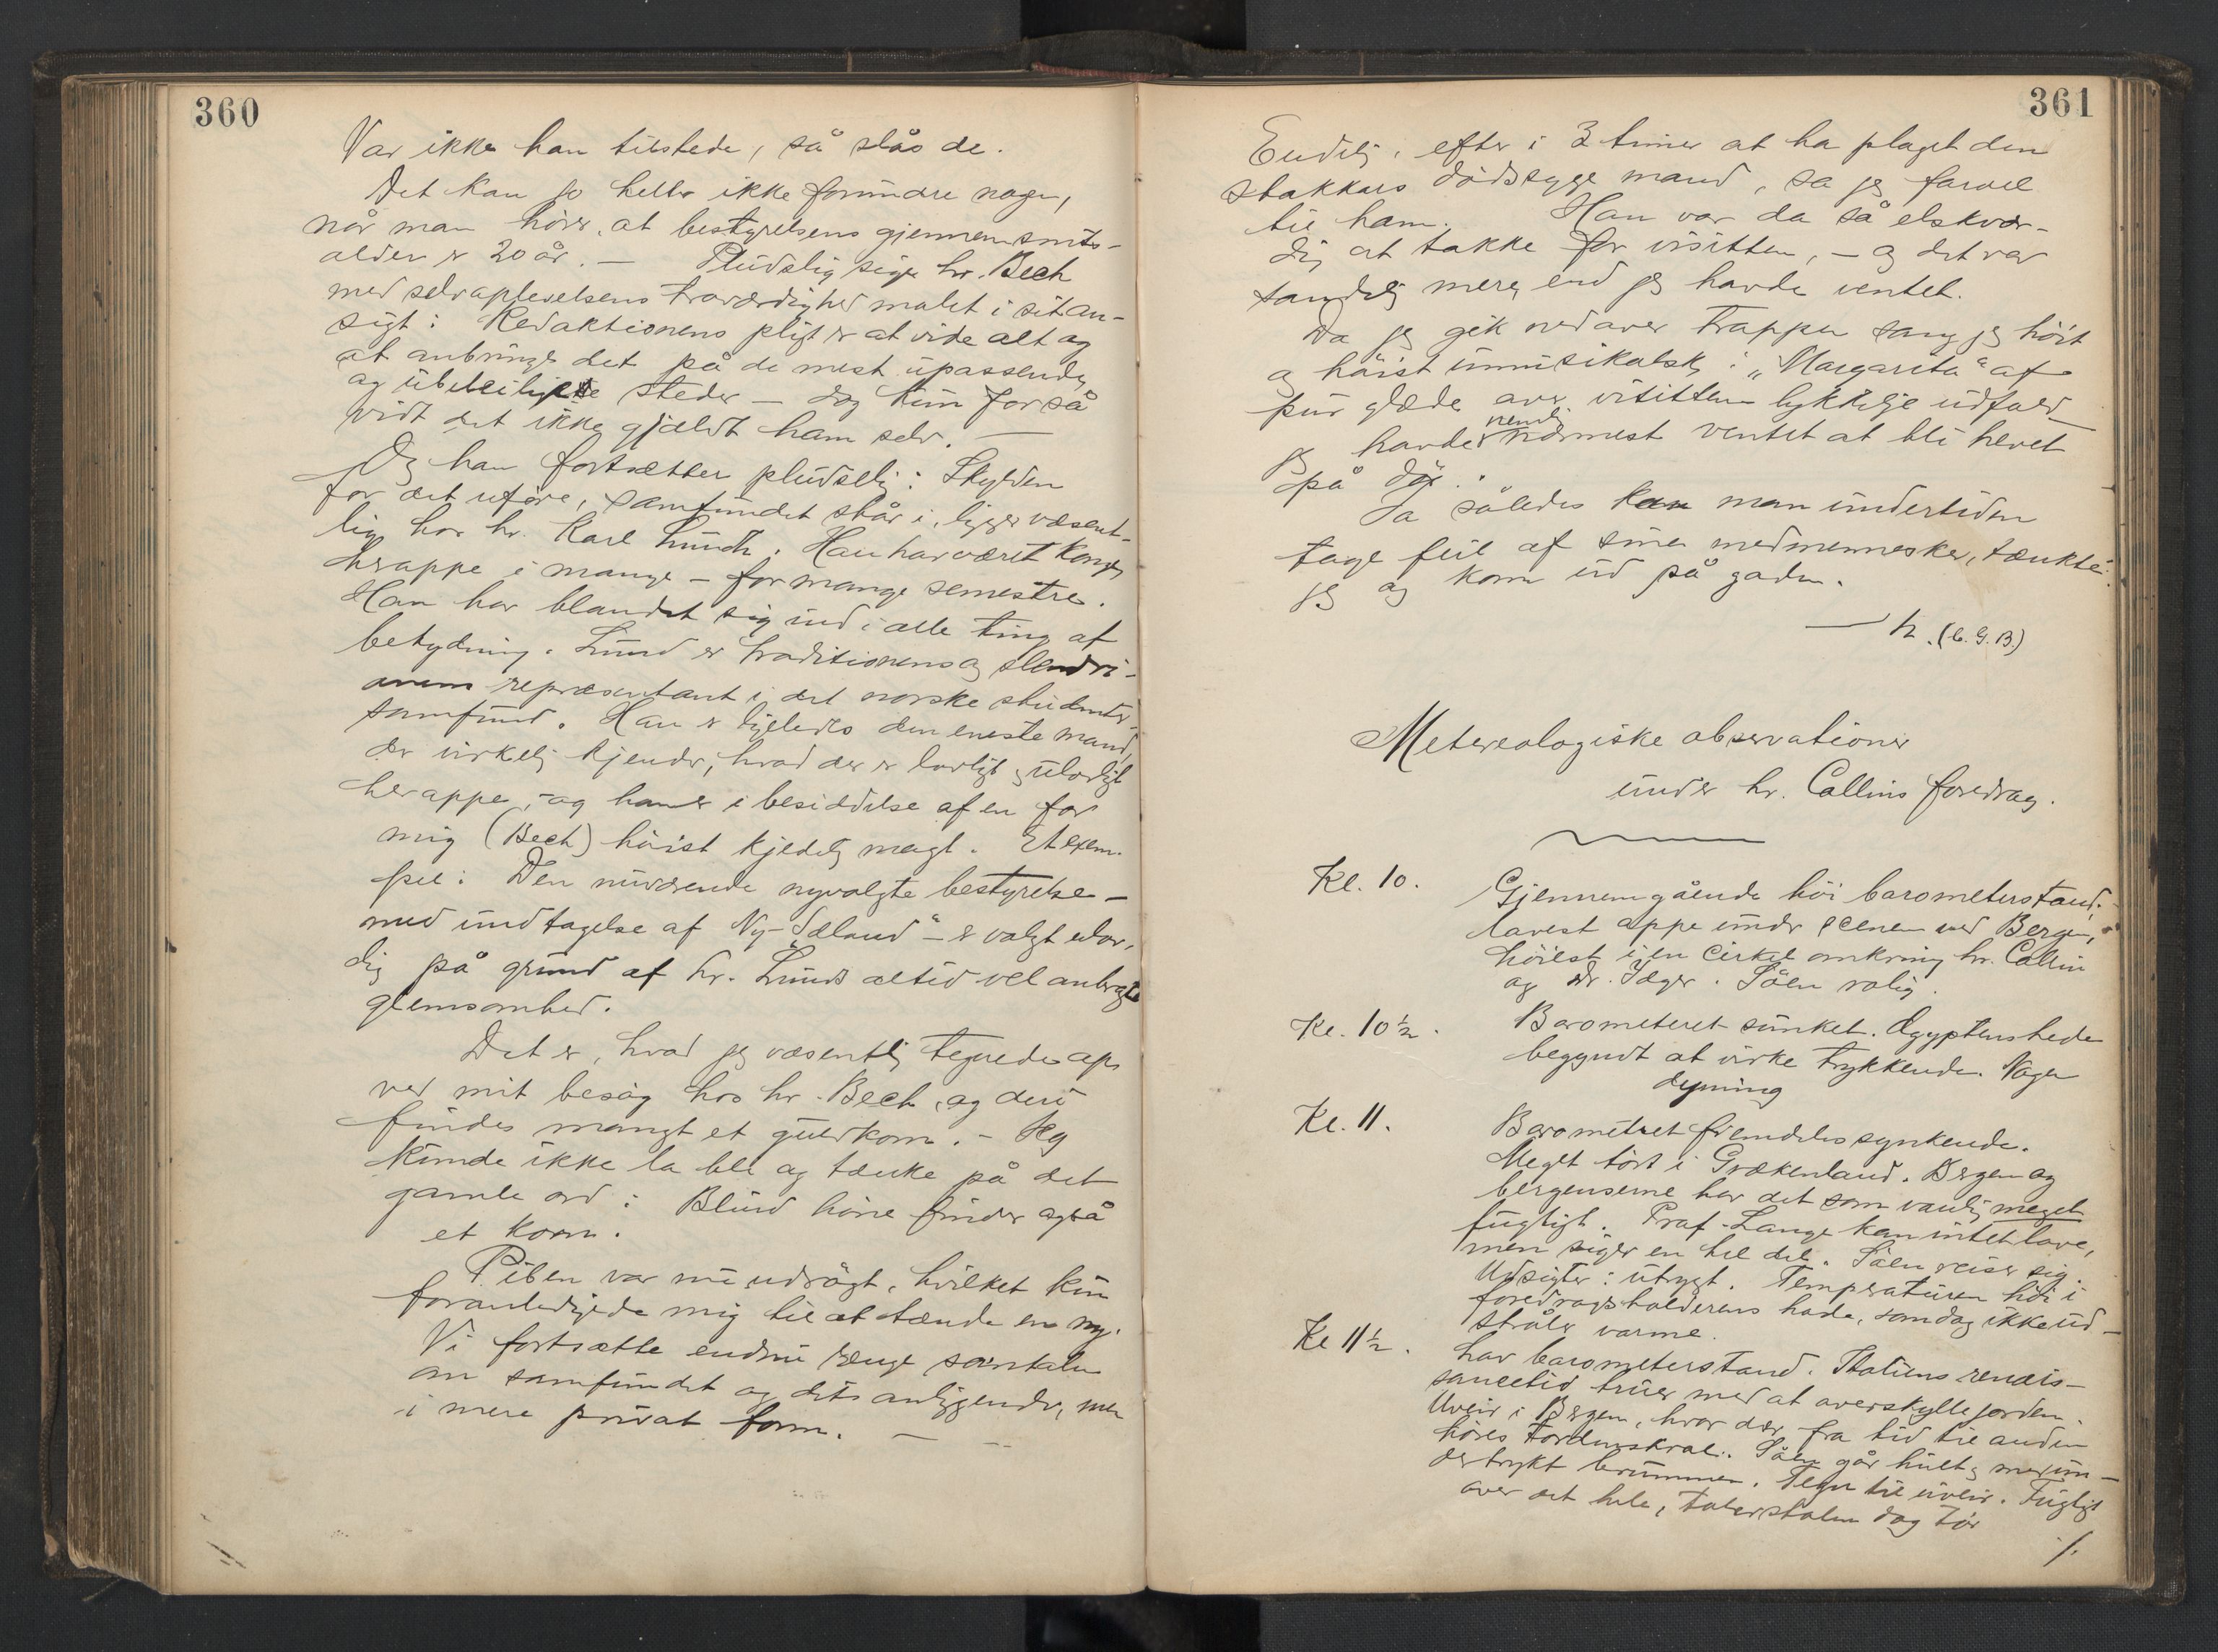 360
Var ikke han tilstede, så slås de.
Det kan jo heller ikke forundre nogen,
når man hører, at bestyrelsens gjennemsnits-
alder er 20 år. — Pludselig siger hr. Bech
med selvoplevelsens troværdighed malet i sit an-
sigt: Redaktionens pligt er at vide alt og
at anbringe det på de mest upassende
og ubeleiligste steder — dog kun for så
vidt det ikke gjældt ham selv. —
Og han fortsætter pludselig: Skylden
for det uføre, samfundet står i, ligger væsent-
lig hos hr. Karl Lund. Han har været konge
heroppe i mange — for mange semestre.
Han har blandet sig ind i alle ting af
betydning. Lund er traditionens og slendri-
anens repræsentant i det norske studenter-
samfund. Han er ligeledes den eneste mand,
der virkelig kjender, hvad der er lovligt og ulovligt
heroppe, og han er i besiddelse af en for
mig (Bech) høist kjedelig magt. Et exem-
pel: Den nuværende nyvalgte bestyrelse —
med undtagelse af "Ny-Sæland" — er valgt ulov-
lig på grund af hr. Lunds altid vel anbragte
glemsomhed.
Det er, hvad jeg væsentlig tegnede op
ved mit besøg hos hr. Bech, og deri
findes mangt et guldkorn. — Jeg
kunde ikke la bli og tænke på det
gamle ord: Blind høne finder også
et korn.
Piben var nu udrøgt, hvilket kun
foranledigede mig til at tænde en ny.
Vi fortsatte endnu længe samtalen
om samfundet og dets anliggender, men
i mere privat form. —
361
Endelig, efter i 3 timer at ha plaget den
stakkars dødssyge mand, sa jeg farvel
til ham. Han var da så elskvær-
dig at takke for visitten, — og det var
sandelig mere end jeg havde ventet.
Da jeg gik nedover trappen sang jeg høit
og høist umusikalsk: "Margarita" af
pur glæde over visittens lykkelige udfald
nemlig
jeg havde nærmest ventet at bli hevet
på dør.
Ja således kan man undertiden
tage feil af sine medmennesker, tænkte
jeg og kom ud på gaden.
— h. (C.G.B.)
Metereologiske observationer
under hr. Collins foredrag.
Kl. 10. Gjennemgående høi barometerstand;
lavest oppe under scenen ved Bergen,
høiest i en cirkel omkring hr. Collin
og dr. Jæger. Søen rolig.
Kl. 10½. Barometeret sunket. Ægyptens hede
begyndt at virke trykkende. Nogen
dynning
Kl. 11. Barometret fremdeles synkende.
Meget tørt i Grækenland. Bergen og
bergenserne har det som vanlig meget
fugtigt. Prof. Lange kan intet love,
men siger en hel del. Søen reiser sig.
Udsigter: utrygt. Temperaturen høi i
foredragsholderens hode, som dog ikke ud-
stråler varme.
Kl 11½. Lav barometerstand. Italiens renæis-
sancetid truer med at overskylle jorden.
Uveir i Bergen, hvor der fra tid til anden
høres tordenskrald. Søen går hult og med un-
dertrykt brummen. Tegn til uveir. Fugtigt
over det hele, talerstolen dog tør
/.